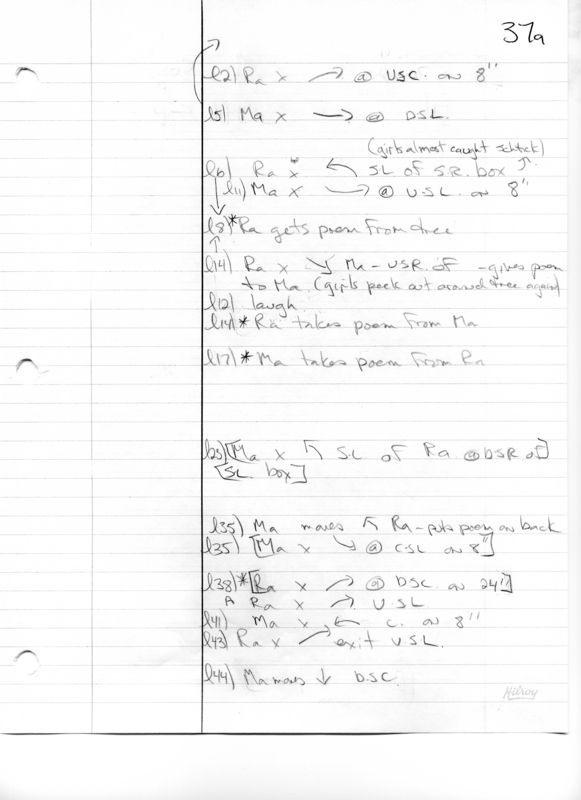 37a
l2) Ra x ↗ @ USC. on 8"
l5) Ma x → @ DSL.
(girls almost caught schtick)
l6) Ra x ↖ SL of SR. box
l11) Ma x → @ U.SL. on 8"
l8)*Ra gets poem from tree
l14) Ra x ↘ Ma - USR of - gives poem
to Ma (girls peek out around tree again)
l12) laugh.
l14)* Ra takes poem from Ma
l17)* Ma takes poem from Ra
l23)[Ma x ↖ SL of Ra @ DSR of]
[SL box]
l35) Ma moves ↖ Ra - puts poem on back
l35) [Ma x ↘ @ CSL on 8"]
l38)*[Ra x ↗ @ DSC. on 24"]
A Ra x ↗ U.SL
l41) Ma x ← C. on 8"
l43) Ra x ↗ exit USL.
l44) Ma moves ↓ D.SC.
Hilroy